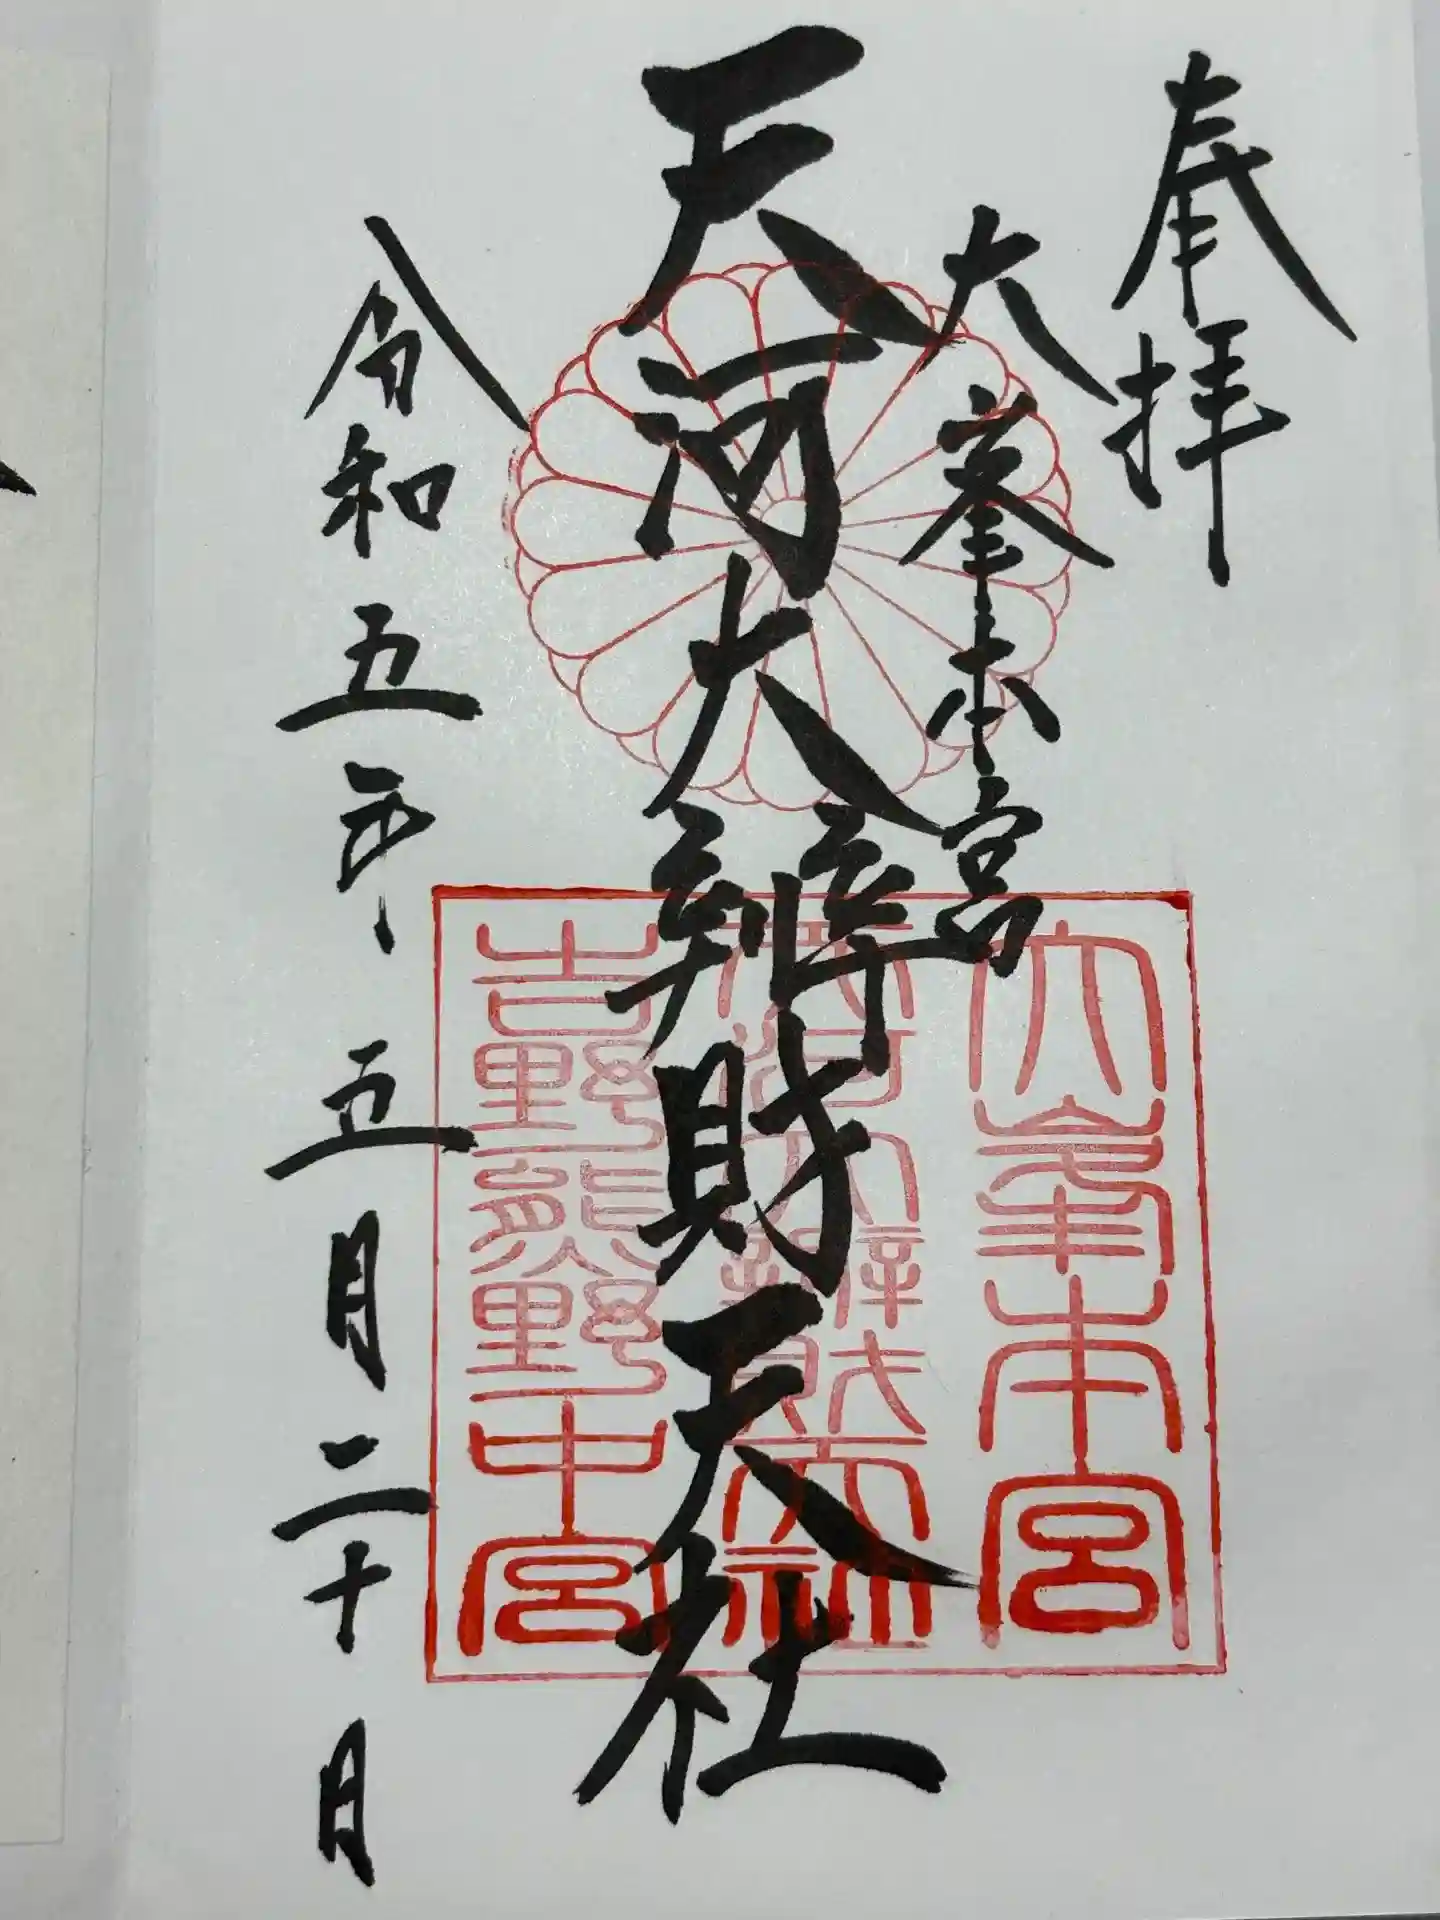 奉拝
大峯本宮
天河大辨財天社
令和五年五月二十日
大峯本宮
天河大辨財天社
吉野熊野中宮